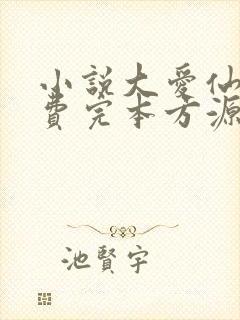 小說大愛仙
費完本方源
池賢宇